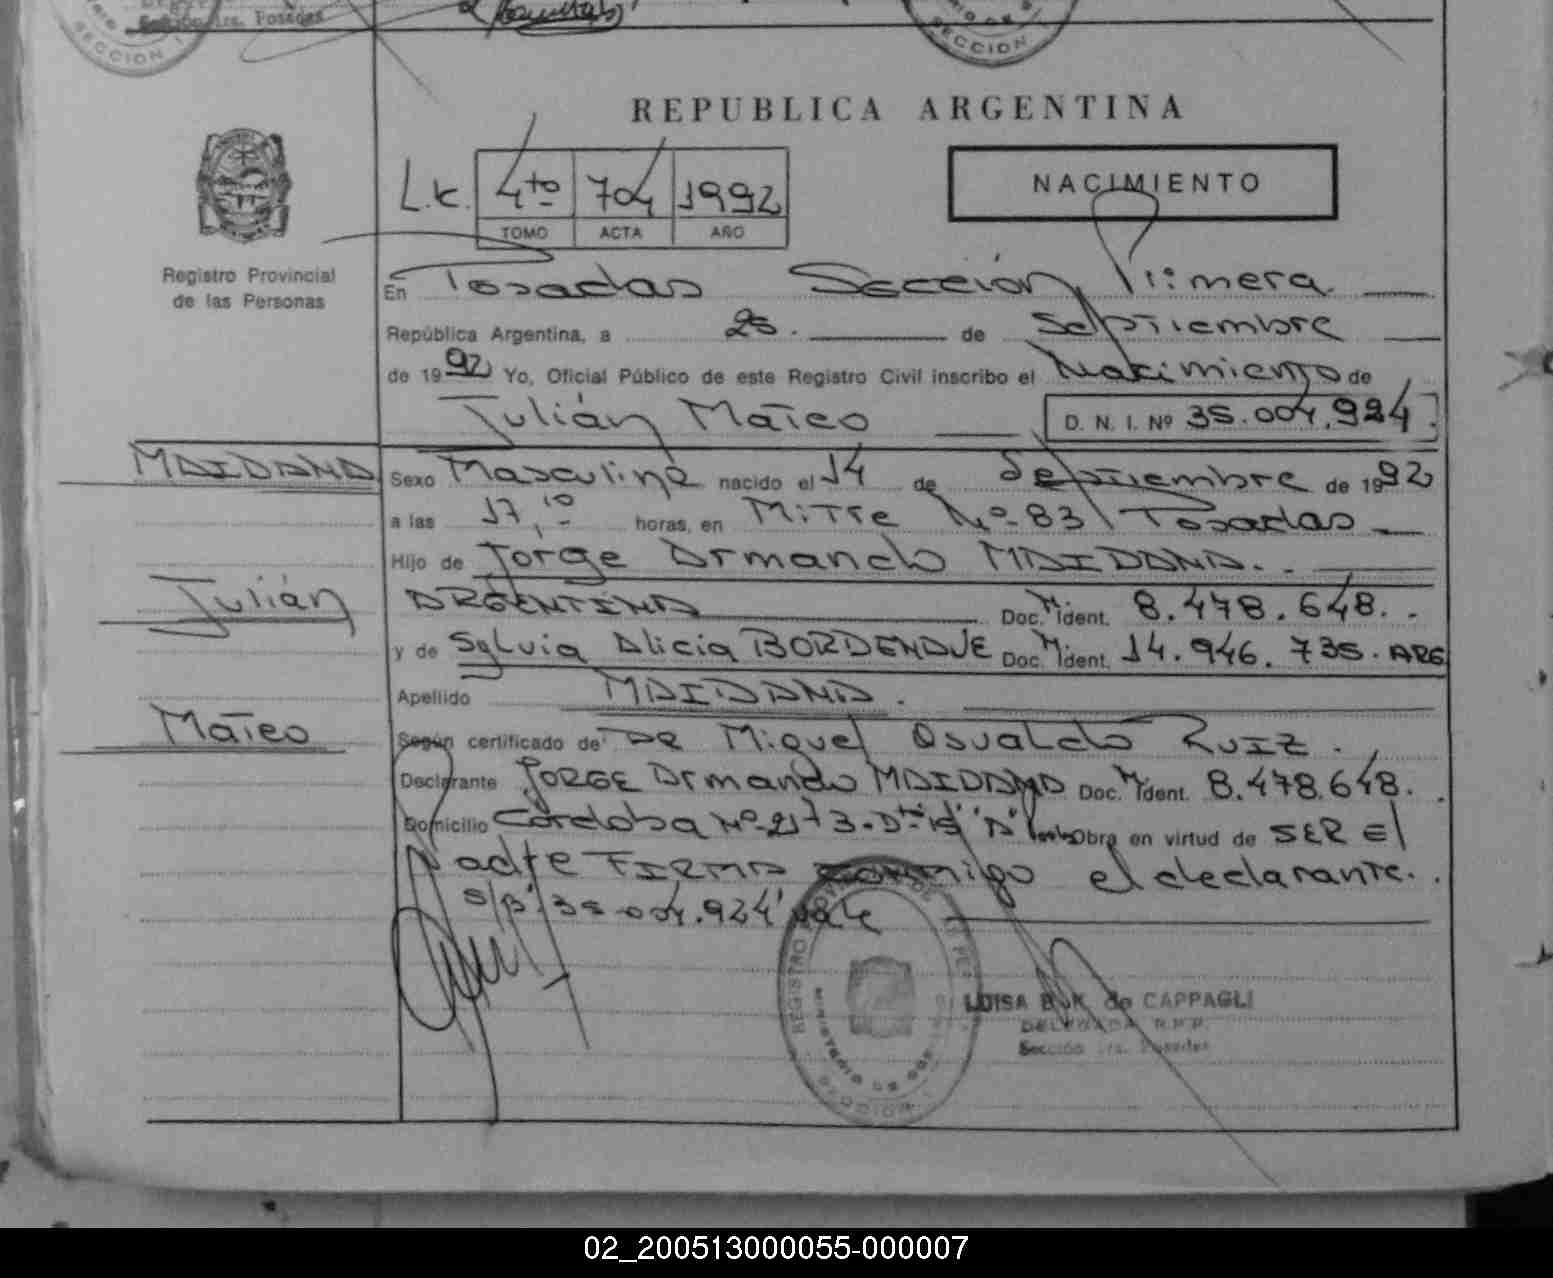 Sección 1ra. Posadas
SECCION 1
SECCION 1
REPUBLICA ARGENTINA
L.K. 4to 704 1992
TOMO ACTA AÑO
NACIMIENTO
Registro Provincial
de las Personas
En Posadas Sección Primera
República Argentina, a 25. de Septiembre
de 1992 Yo, Oficial Público de este Registro Civil inscribo el Nacimiento de
Julián Mateo D. N. I. Nº 35.004.924.
MAIDANA
Sexo Masculino nacido el 14 de Septiembre de 1992
a las 17,10 horas, en Mitre Nº 83 Posadas
Hijo de Jorge Armando MAIDANA.
Julián
ARGENTINA Doc. M. Ident. 8.478.648.
y de Sylvia Alicia BORDENAVE Doc. M. Ident. 14.946.735. ARG
Apellido MAIDANA.
Mateo
Según certificado de DR Miguel Osvaldo RUIZ.
Declarante JORGE Armando MAIDANA Doc. M. Ident. 8.478.648.
Domicilio Cordoba Nº 2173. Dto 15 "A" Obra en virtud de SER El
Padre FIRMA conmigo el declarante.
S/R 35.004.924 vale
REGISTRO PROVINCIAL DE LAS PER
MINISTERIO DE GOB
SECCION 1
LUISA B. K. de CAPPAGLI
DELEGADA R.P.P.
Sección 1ra. Posadas
02_200513000055-000007